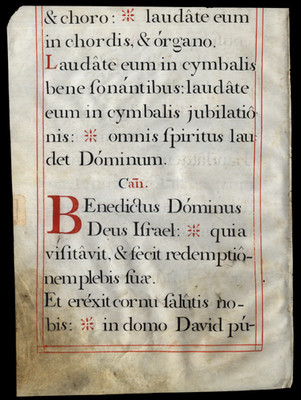 & choro: ⁜ laudâte eum
in chordis, & órgano.
Laudâte eum in cymbalis
bene ſonántibus: laudâte
eum in cymbalis jubilatiô
nis: ⁜ omnis ſpiritus lau
det Dóminum.
Cañ.
BEnedictus Dóminus
Deus Iſrael: ⁜ quia
viſitâvit, & fecit redemptiô-
nem plebis ſuæ.
Et eréxit cornu ſalûtis no-
bis: ⁜ in domo David pú-